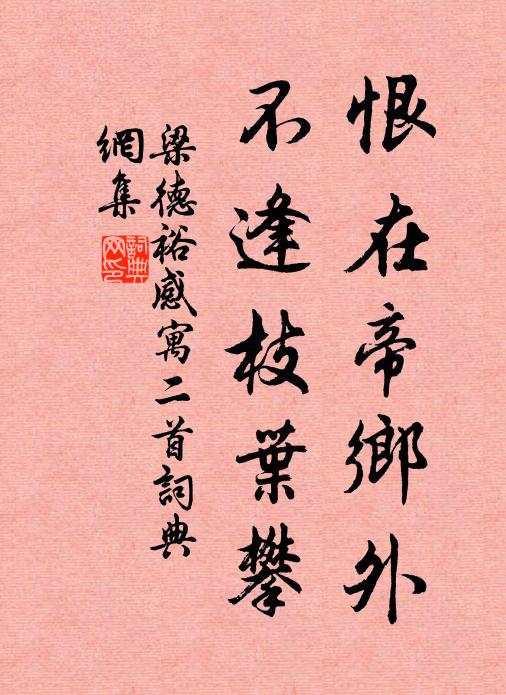 恨在帝鄉外
不逢枝葉攀
梁德裕感寓二首詞典
網集
詞典
网印